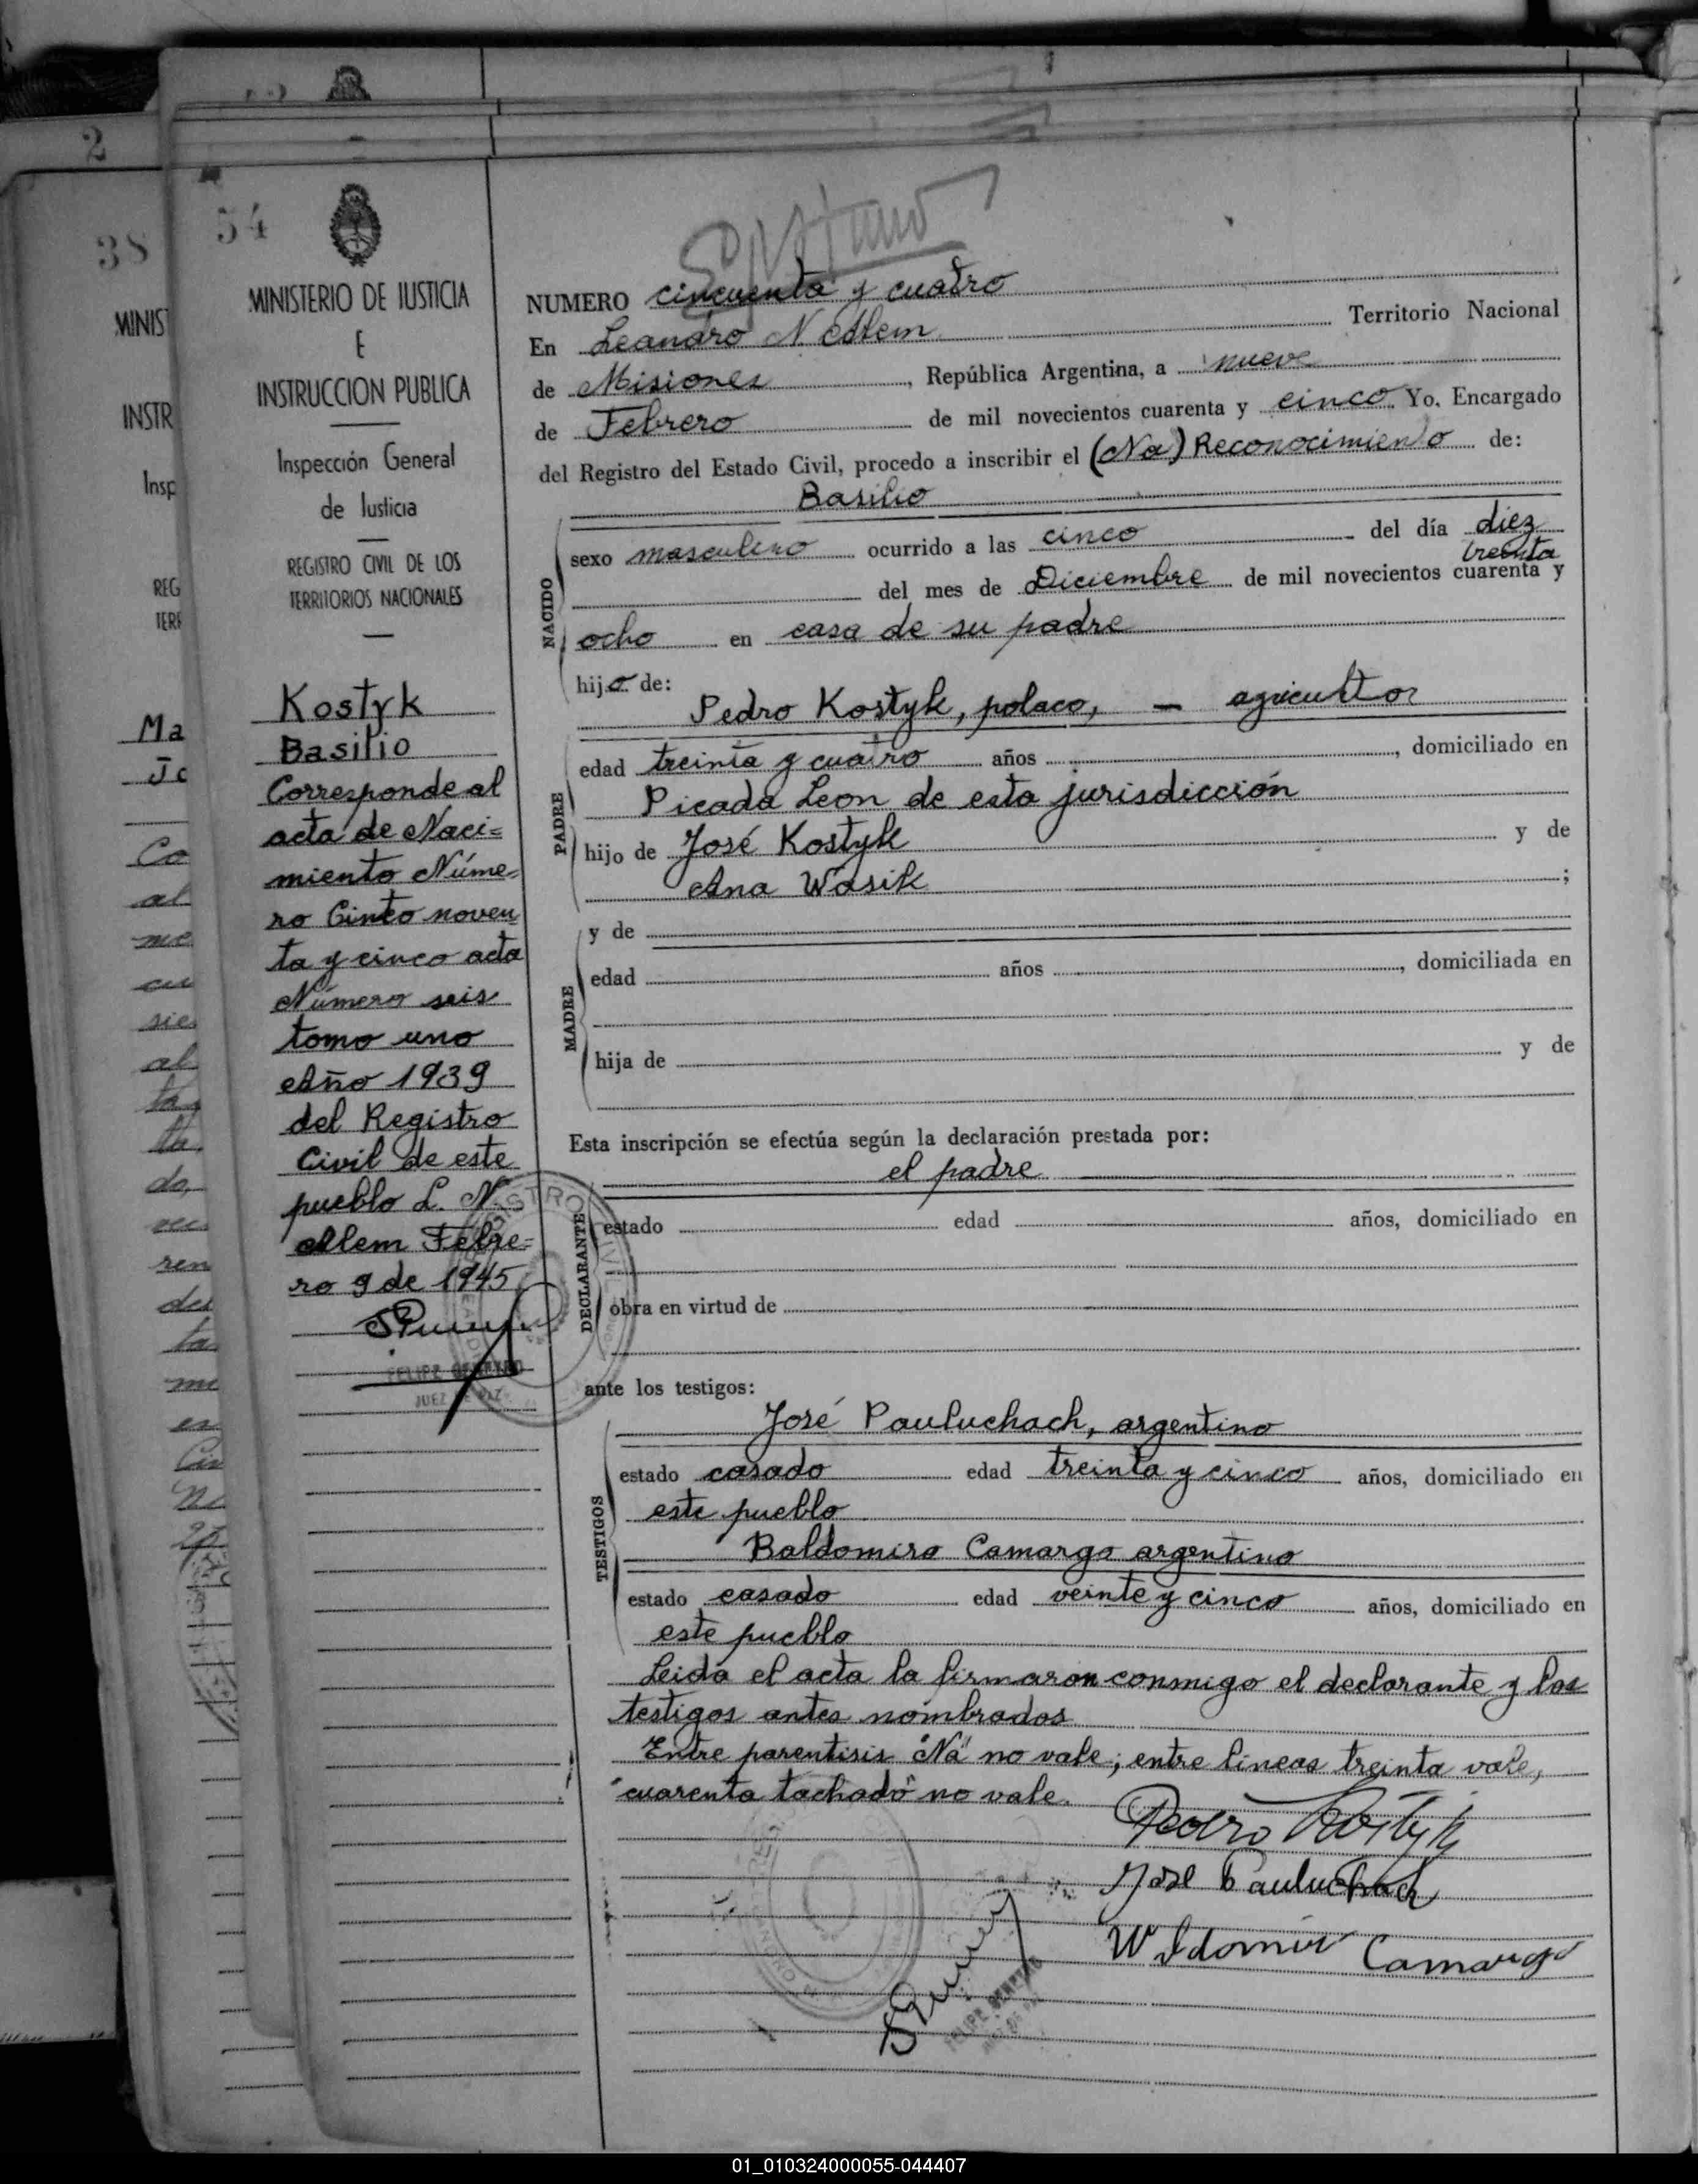 2
38
54
MINISTERIO DE JUSTICIA
E
INSTRUCCION PUBLICA
Inspección General
de Justicia
REGISTRO CIVIL DE LOS
TERRITORIOS NACIONALES
Kostyk
Basilio
Corresponde al
acta de Naci=
miento Núme-
ro Cinto noven
ta y cinco acta
Número seis
tomo uno
Año 1939
del Registro
Civil de este
pueblo L. N.
Alem Febre=
ro 9 de 1945
JUEZ DE PAZ
NUMERO cincuenta y cuatro
En Leandro N Alem Territorio Nacional
de Misiones, República Argentina, a nueve
de Febrero de mil novecientos cuarenta y cinco. Yo, Encargado
del Registro del Estado Civil, procedo a inscribir el (Na) Reconocimiento de:
Basilio
NACIDO
sexo masculino ocurrido a las cinco del día diez
treinta
del mes de Diciembre de mil novecientos cuarenta y
ocho en casa de su padre
hijo de:
Pedro Kostyk, polaco, — agricultor
PADRE
edad treinta y cuatro años, domiciliado en
Picada Leon de esta jurisdicción
hijo de José Kostyk y de
Ana Wasik;
MADRE
y de
edad años, domiciliada en
hija de y de
Esta inscripción se efectúa según la declaración prestada por:
el padre
DECLARANTE
estado edad años, domiciliado en
obra en virtud de
ante los testigos:
TESTIGOS
José Pauluchach, argentino
estado casado edad treinta y cinco años, domiciliado en
este pueblo
Baldomiro Camargo argentino
estado casado edad veinte y cinco años, domiciliado en
este pueblo
Leida el acta la firmaron conmigo el declarante y los
testigos antes nombrados
Entre parentisis "Na" no vale; entre lineas treinta vale,
"cuarenta tachado" no vale.
Pedro Kostyk
José Pauluchach
Waldomir Camargo
01_010324000055-044407